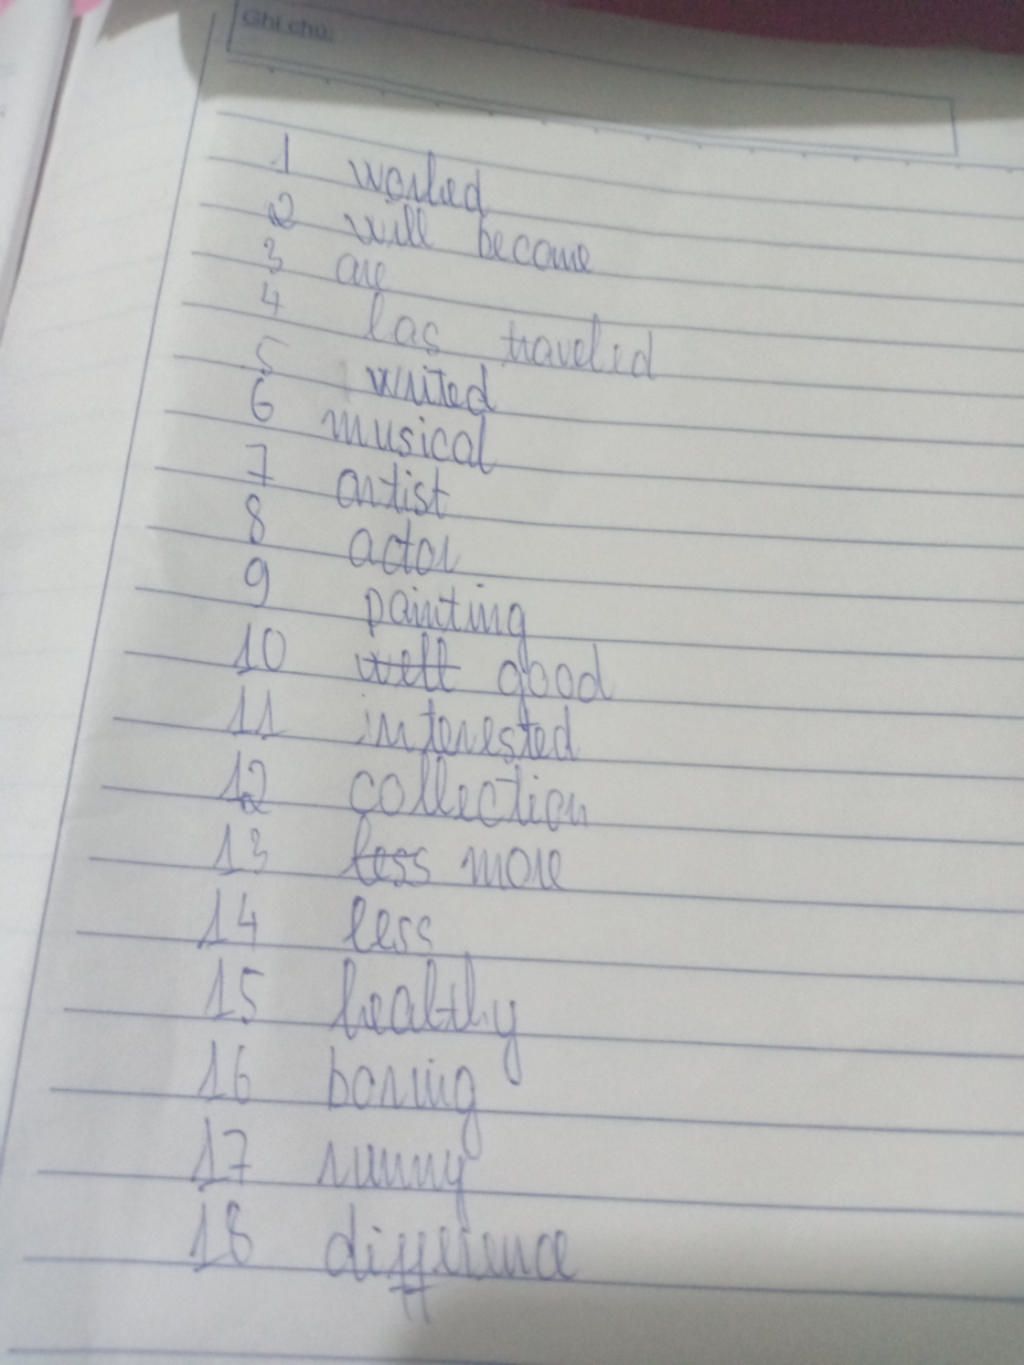 Ghi chú:
1 worked
2 will become
3 are
4 has traveled
5 writed
6 musical
7 artist
8 actor
9 painting
10 well good
11 interested
12 collection
13 less more
14 less
15 healthy
16 boring
17
18 difference